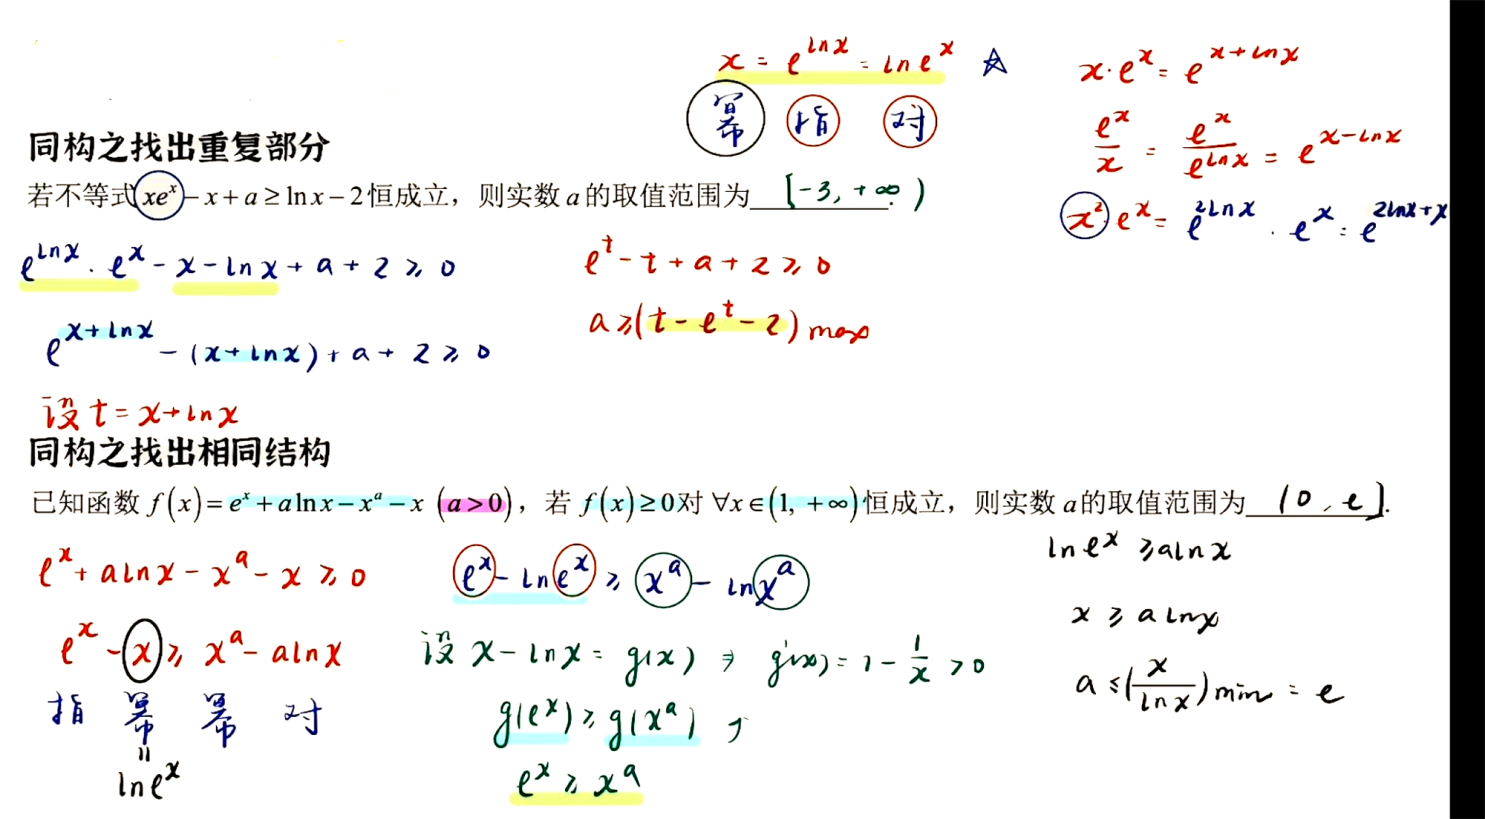 x = e^{lnx} = ln e^x ☆
幂 指 对
x·e^x = e^{x+lnx}
e^x/x = e^x/e^{lnx} = e^{x-lnx}
x² e^x = e^{2lnx} · e^x = e^{2lnx+x}
同构之找出重复部分
若不等式 xe^x - x + a ≥ ln x - 2 恒成立，则实数 a 的取值范围为 [-3, +∞) .
e^{lnx} · e^x - x - lnx + a + 2 ≥ 0
e^{x+lnx} - (x+lnx) + a + 2 ≥ 0
设 t = x+lnx
e^t - t + a + 2 ≥ 0
a ≥ (t - e^t - 2) max
同构之找出相同结构
已知函数 f(x) = e^x + a ln x - x^a - x (a>0)，若 f(x) ≥ 0 对 ∀x∈(1, +∞) 恒成立，则实数 a 的取值范围为 (0, e] .
e^x + alnx - x^a - x ≥ 0
e^x - x ≥ x^a - alnx
指 幂 幂 对
=
ln e^x
e^x - ln e^x ≥ x^a - ln x^a
设 x - lnx = g(x) ⇒ g'(x) = 1 - 1/x > 0
g(e^x) ≥ g(x^a) ↗
e^x ≥ x^a
ln e^x ≥ alnx
x ≥ a lnx
a ≤ (x/lnx) min = e